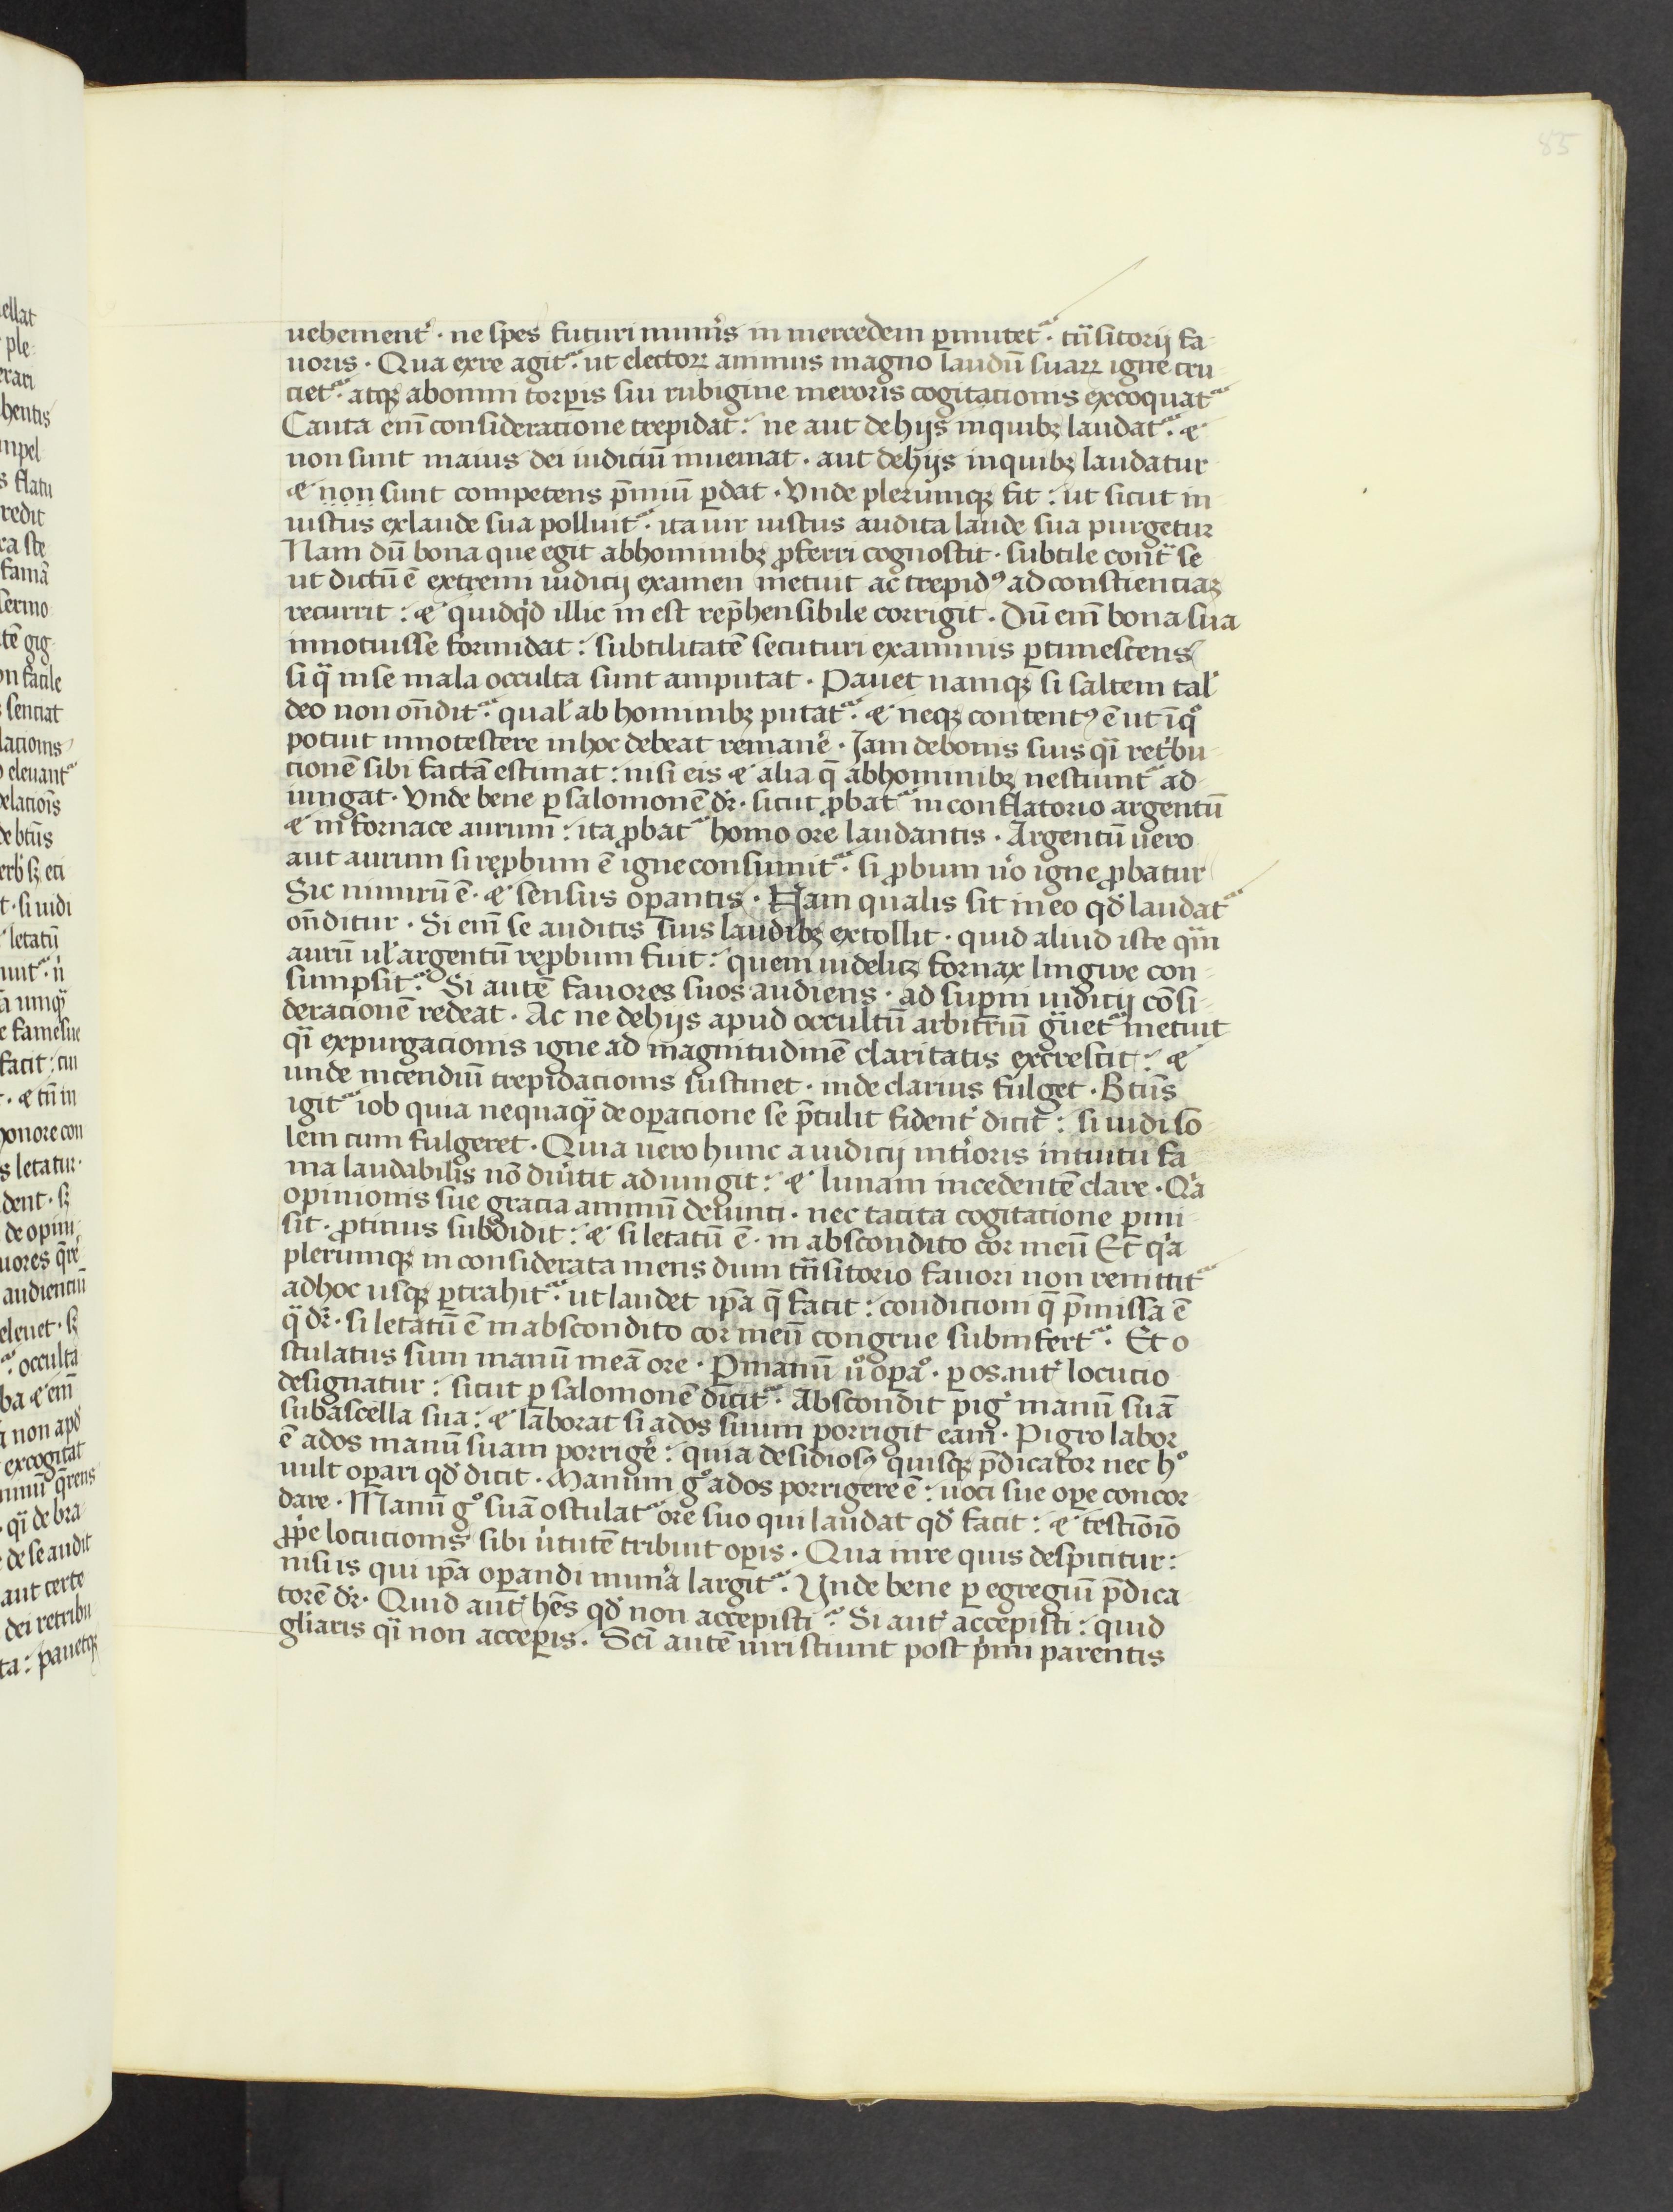 85
uehement᷑ · ne spes futuri mun᷑is in mercedem p̲mutet᷑ · t᷑nsitorij fa-
uoris · Qua exre agit᷑ · ut electoꝝ animus magno laudū suaꝝ igne cru-
ciet᷑ · atqꝫ abomni torp̲is sui rubigine meroris cogitacionis excoquat᷑
Cauta eni᷒ consideracione trepidat : ne aut dehijs inquibꝫ laudat᷑ · ⁊
non sunt maius dei iudiciū inueniat · aut dehijs inquibꝫ laudatur
⁊ non sunt competens p̄miū ꝑdat · Vnde plerumqꝫ fit : ut sicut in
iustus exlaude sua polluit᷑ · ita uir iustus audita laude sua purgetur
Nam dū bona que egit abhominibꝫ ꝓferri cognoscit · subtile cont᷑ se
ut dictū ē extremi iudicij examen metuit ac trepidꝰ ad conscienciaꝫ
recurrit : ⁊ quidqͥd illic in est rep̄hensibile corrigit · Dū eni᷒ bona sua
innotuisse formidat : subtilitatē secuturi examinis ꝑtimescens
si q̈ inse mala occulta sunt amputat · Pauet namqꝫ si saltem tal᷑
deo non on̄dit᷑ · qual᷑ ab hominibꝫ putat᷑ · ⁊ neqꝫ contentꝰ ē ut īqͦ
potuit innotescere inhoc debeat reman᷑e · Jam debonis suis qͣi ret᷑bu-
cionē sibi factā estimat : nisi eis ⁊ alia q̄ abhominibꝫ nesciunt᷑ ad-
iungat · Vnde bene ꝑ salomonē dr᷑ · sicut ꝓbat᷑ in conflatorio argentū
⁊ in fornace aurum : ita ꝓbat᷑ homo ore laudantis · Argentū uero
aut aurum si reꝓbum ē igne consumit᷑ · si ꝓbum uͦo igne ꝓbatur
Sic nimirū ē · ⁊ sensus oꝑantis · Nam qualis sit in eo qd᷑ laudat᷑
on̄ditur · Si eni᷒ se auditis suis laudibꝫ extollit · quid aliud iste qͣm
aurū ul᷑ argentū reꝓbum fuit : quem uidelicꝫ fornax lingwe con-
sumpsit᷑ · Si autē fauores suos audiens · ad suꝑni iudicij cōsi-
deracionē redeat · Ac ne dehijs apud occultū arbitriū gͣuet᷑ metuit
qͣi expurgacionis igne ad magnitudinē claritatis excrescit : ⁊
unde incendiū trepidacionis sustinet · inde clarius fulget · Btūs
igit᷑ iob quia nequaqͣ de oꝑacione se p̄tulit fident᷑ dicit : si uidi so-
lem cum fulgeret · Quia uero hunc a iudicij int᷑ioris intuitu fa-
ma laudabilis nō diu᷑tit adiungit : ⁊ lunam incedentē clare · Qͥa
opinionis sue gracia animū deiunci · nec tacita cogitacione ꝑmi-
sit · ꝓtinus subdidit : ⁊ si letatū ē · in abscondito cor meū Et qͥa
plerumqꝫ in considerata mens dum t᷑nsitorio fauori non renittit᷑
adhoc usqꝫ ꝑtrahit᷑ · ut laudet ip̄a q̄ facit : condicioni q̄ p̄missa ē
qͣ dr᷑ · si letatū ē in abscondito cor meū congrue subinfert᷑ · Et o-
sculatus sum manū meā ore · Pmanū uͦ oꝑaͦ · ꝑ os aut᷑ locutio
designatur : sicut ꝑ salomonē dicit᷑ · Abscondit pig᷑ manū suā
subascella sua : ⁊ laborat si ados suum porrigit eam · Pigro labor
ē ados manū suam porrig᷑e : quia desidiosꝰ quisqꝫ p̄dicator nec hͦ
uult oꝑari qd᷑ dicit · Manum gͦ ados porrigere ē : uoci sue oꝑe concor-
dare · Manū gͦ suā osculat᷑ ore suo qui laudat qd᷑ facit : ⁊ testiōiō
ꝓp̄e locucionis sibi u᷑tutē tribuit oꝑis · Qua inre quis despicitur :
nisi is qui ip̄a oꝑandi mun᷑a largit᷑ · Vnde bene ꝑ egregiū p̄dica-
torē dr᷑ · Quid aut᷑ hēs qd᷑ non accepisti · Si aut᷑ accepisti : quid
gl̄iaris qͣi non acceꝑis · Sc̄i autē uiri sciunt post pͥmi parentis